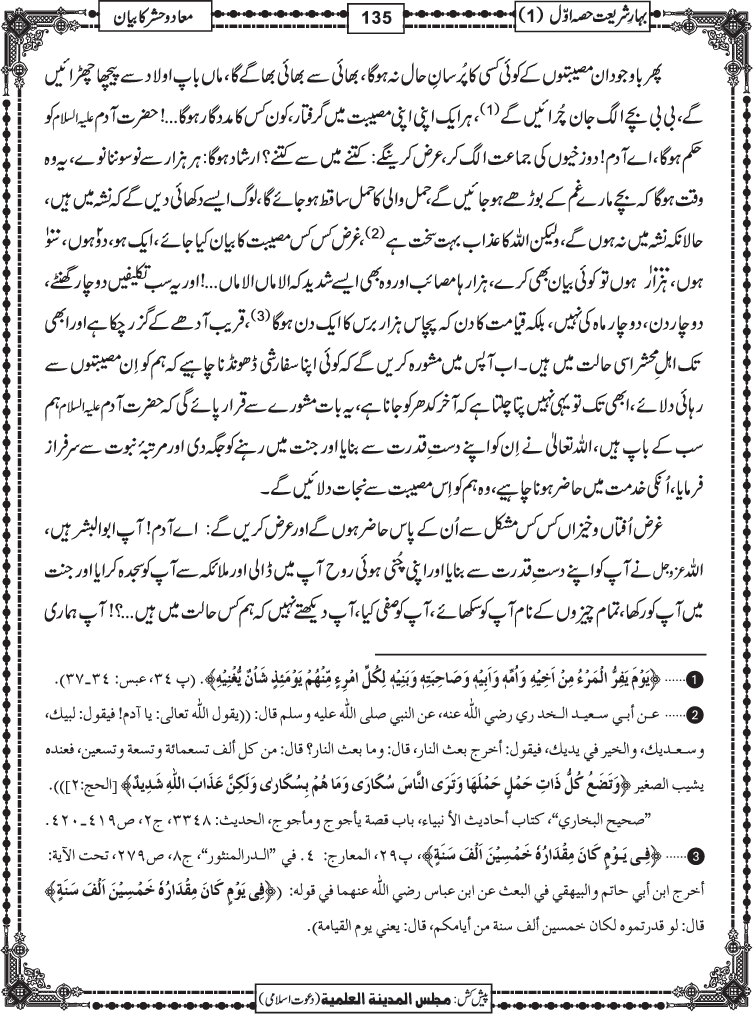 بہارِ شریعت حصہ اوّل (1)
135
معاد و حشر کا بیان
پھر باوجود ان مصیبتوں کے کوئی کسی کا پُرسانِ حال نہ ہوگا، بھائی سے بھائی بھاگے گا، ماں باپ اولاد سے پیچھا چھڑائیں
گے، بی بی بچے الگ جان چُرائیں گے(1)، ہر ایک اپنی اپنی مصیبت میں گرفتار، کون کس کا مددگار ہوگا...! حضرت آدم علیہ السلام کو
حکم ہوگا، اے آدم! دوزخیوں کی جماعت الگ کر، عرض کرینگے: کتنے میں سے کتنے؟ ارشاد ہوگا: ہر ہزار سے نو سو ننانوے، یہ وہ
وقت ہوگا کہ بچے مارے غم کے بوڑھے ہوجائیں گے، حمل والی کا حمل ساقط ہوجائے گا، لوگ ایسے دکھائی دیں گے کہ نشہ میں ہیں،
حالانکہ نشہ میں نہ ہوں گے، ولیکن اللہ کا عذاب بہت سخت ہے(2)، غرض کس کس مصیبت کا بیان کیا جائے، ایک ہو، دو ہوں، سَو
ہوں، ہزار ہوں تو کوئی بیان بھی کرے، ہزارہا مصائب اور وہ بھی ایسے شدید کہ الاماں الاماں...! اور یہ سب تکلیفیں دو چار گھنٹے،
دو چار دن، دو چار ماہ کی نہیں، بلکہ قیامت کا دن کہ پچاس ہزار برس کا ایک دن ہوگا(3)، قریب آدھے کے گزر چکا ہے اور ابھی
تک اہلِ محشر اسی حالت میں ہیں۔ اب آپس میں مشورہ کریں گے کہ کوئی اپنا سفارشی ڈھونڈنا چاہیے کہ ہم کو اِن مصیبتوں سے
رہائی دلائے، ابھی تک تو یہی نہیں پتا چلتا ہے کہ آخر کدھر کو جانا ہے، یہ بات مشورے سے قرار پائے گی کہ حضرت آدم علیہ السلام ہم
سب کے باپ ہیں، اللہ تعالیٰ نے اِن کو اپنے دستِ قدرت سے بنایا اور جنت میں رہنے کو جگہ دی اور مرتبۂ نبوت سے سرفراز
فرمایا، اُنکی خدمت میں حاضر ہونا چاہیے، وہ ہم کو اِس مصیبت سے نجات دلائیں گے۔
غرض اُفتاں و خیزاں کس کس مشکل سے اُن کے پاس حاضر ہوں گے اور عرض کریں گے: اے آدم! آپ ابو البشر ہیں،
اللہ عزوجل نے آپ کو اپنے دستِ قدرت سے بنایا اور اپنی چُنی ہوئی روح آپ میں ڈالی اور ملائکہ سے آپ کو سجدہ کرایا اور جنت
میں آپ کو رکھا، تمام چیزوں کے نام آپ کو سکھائے، آپ کو صفی کیا، آپ دیکھتے نہیں کہ ہم کس حالت میں ہیں...؟! آپ ہماری
1 ...... ﴿يَوْمَ يَفِرُّ الْمَرْءُ مِنْ اَخِيْهِ وَاُمِّهٖ وَاَبِيْهِ وَصَاحِبَتِهٖ وَبَنِيْهِ لِكُلِّ امْرِءٍ مِّنْهُمْ يَوْمَئِذٍ شَاْنٌ يُّغْنِيْهِ﴾. (پ ٣٤، عبس: ٣٤ـ٣٧).
2 ...... عن أبي سعيد الخدري رضي الله عنه، عن النبي صلى الله عليه وسلم قال: ((يقول الله تعالى: يا آدم! فيقول: لبيك،
وسعديك، والخير في يديك، فيقول: أخرج بعث النار، قال: وما بعث النار؟ قال: من كل ألف تسعمائة وتسعة وتسعين، فعنده
يشيب الصغير ﴿وَتَضَعُ كُلُّ ذَاتِ حَمْلٍ حَمْلَهَا وَتَرَى النَّاسَ سُكَارَى وَمَا هُمْ بِسُكَارٰى وَلَكِنَّ عَذَابَ اللهِ شَدِيْدٌ﴾ [الحج:٢])).
”صحيح البخاري“، كتاب أحاديث الأنبياء، باب قصة يأجوج ومأجوج، الحديث: ٣٣٤٨، ج٢، ص٤١٩ـ٤٢٠.
3 ...... ﴿فِی يَوْمٍ كَانَ مِقْدَارُهٗ خَمْسِيْنَ اَلْفَ سَنَةٍ﴾، پ٢٩، المعارج: ٤. في ”الدر المنثور“، ج٨، ص٢٧٩، تحت الآية:
أخرج ابن أبي حاتم والبيهقي في البعث عن ابن عباس رضي الله عنهما في قوله: (﴿فِی يَوْمٍ كَانَ مِقْدَارُهٗ خَمْسِيْنَ اَلْفَ سَنَةٍ﴾
قال: لو قدرتموه لكان خمسين ألف سنة من أيامكم، قال: يعني يوم القيامة).
پیش کش: مجلس المدينة العلمية (دعوتِ اسلامی)